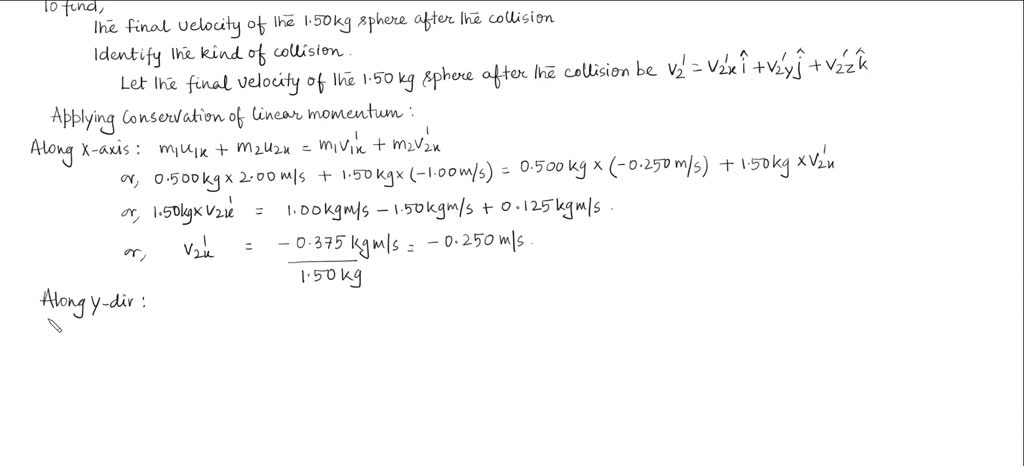 To find,
The final velocity of the 1.50 kg sphere after the collision
Identify the kind of collision.
Let the final velocity of the 1.50 kg sphere after the collision be V₂' = V₂ₓ' î + V₂y' ĵ + V₂z' k̂
Applying conservation of linear momentum:
Along x-axis: m₁u₁ₓ + m₂u₂ₓ = m₁v₁ₓ' + m₂v₂ₓ'
or, 0.500 kg × 2.00 m/s + 1.50 kg × (-1.00 m/s) = 0.500 kg × (-0.250 m/s) + 1.50 kg × V₂ₓ'
or, 1.50 kg × V₂ₓ' = 1.00 kg m/s - 1.50 kg m/s + 0.125 kg m/s.
or, V₂ₓ' = -0.375 kg m/s = -0.250 m/s.
1.50 kg
Along y-dir: